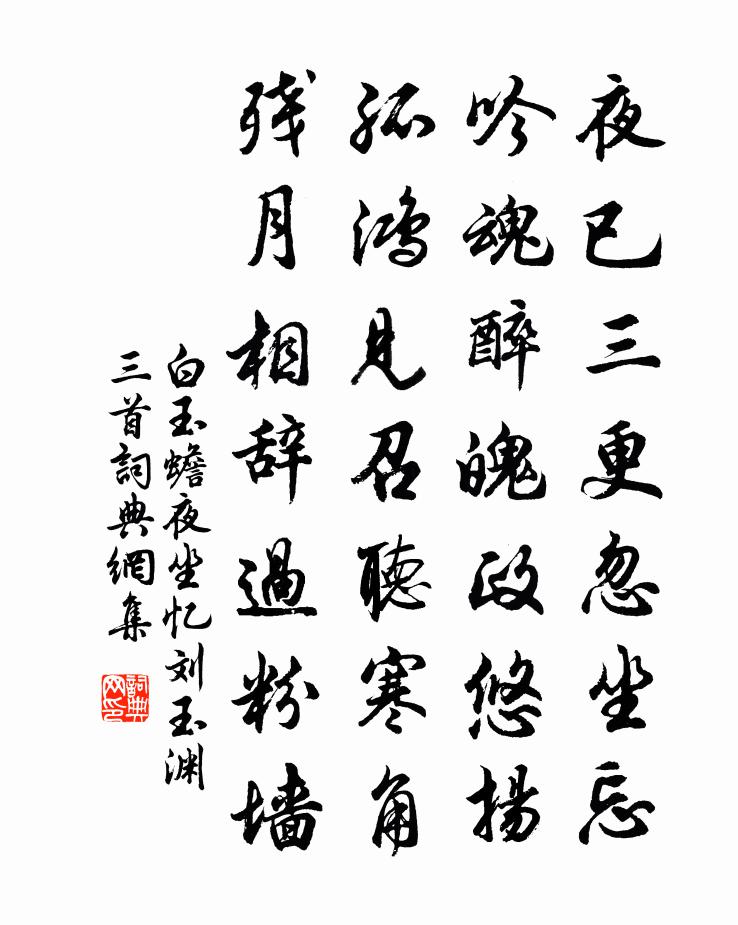 夜已三更忽坐忘
吟魂醉魄政悠揚
孤鴻見召聽寒角
残月相辞過粉墙
白玉蟾夜坐忆刘玉渊
三首詞典網集
詞典网印